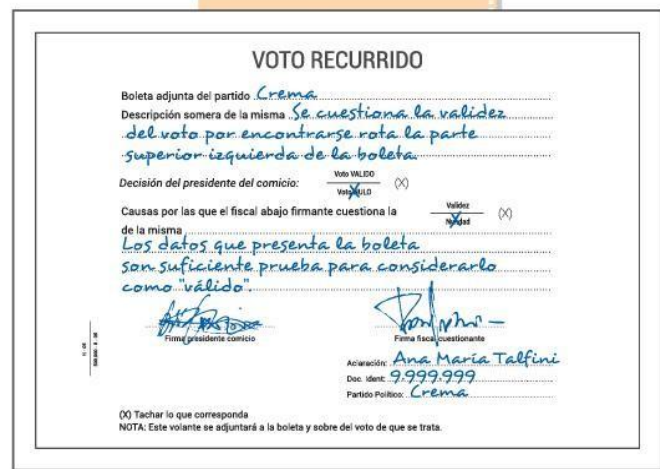 VOTO RECURRIDO
Boleta adjunta del partido Crema
Descripción somera de la misma Se cuestiona la validez
del voto por encontrarse rota la parte
superior izquierda de la boleta.
Decisión del presidente del comicio: Voto VALIDO (X)
Voto NULO
Causas por las que el fiscal abajo firmante cuestiona la Validez (X)
Nulidad
de la misma
Los datos que presenta la boleta
son suficiente prueba para considerarlo
como "válido".
Firma presidente comicio Firma fiscal cuestionante
Aclaración: Ana María Talfini
Doc. Ident: 9.999.999
Partido Político: Crema
(X) Tachar lo que corresponda
NOTA: Este volante se adjuntará a la boleta y sobre del voto de que se trata.